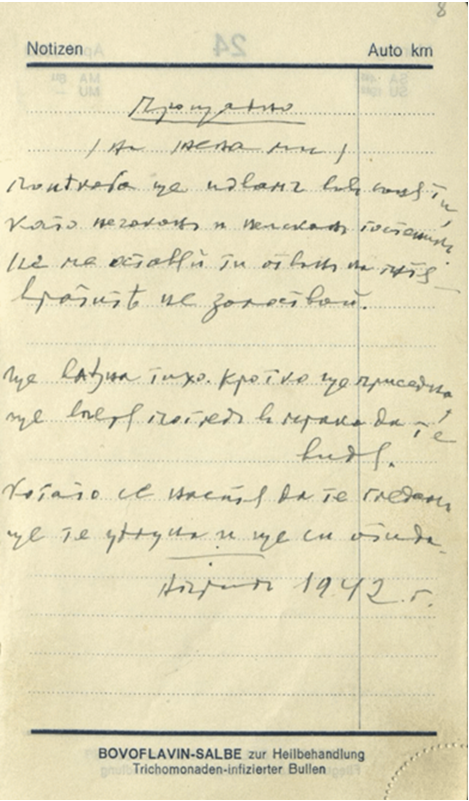 8
Notizen Auto km
Прощално
/на жена ми/
Понякога ще идвам във съня ти
като нечакан и неискан гостенин
Не ме оставяй ти отвън на пътя –
вратите не залоствай.
ще влезна тихо. Кротко ще приседна
ще вперя поглед в мрака да те
видя.
Когато се наситя да те гледам
ще те целуна и ще си отида.
1942 г.
BOVOFLAVIN-SALBE zur Heilbehandlung
Trichomonaden-infizierter Bullen